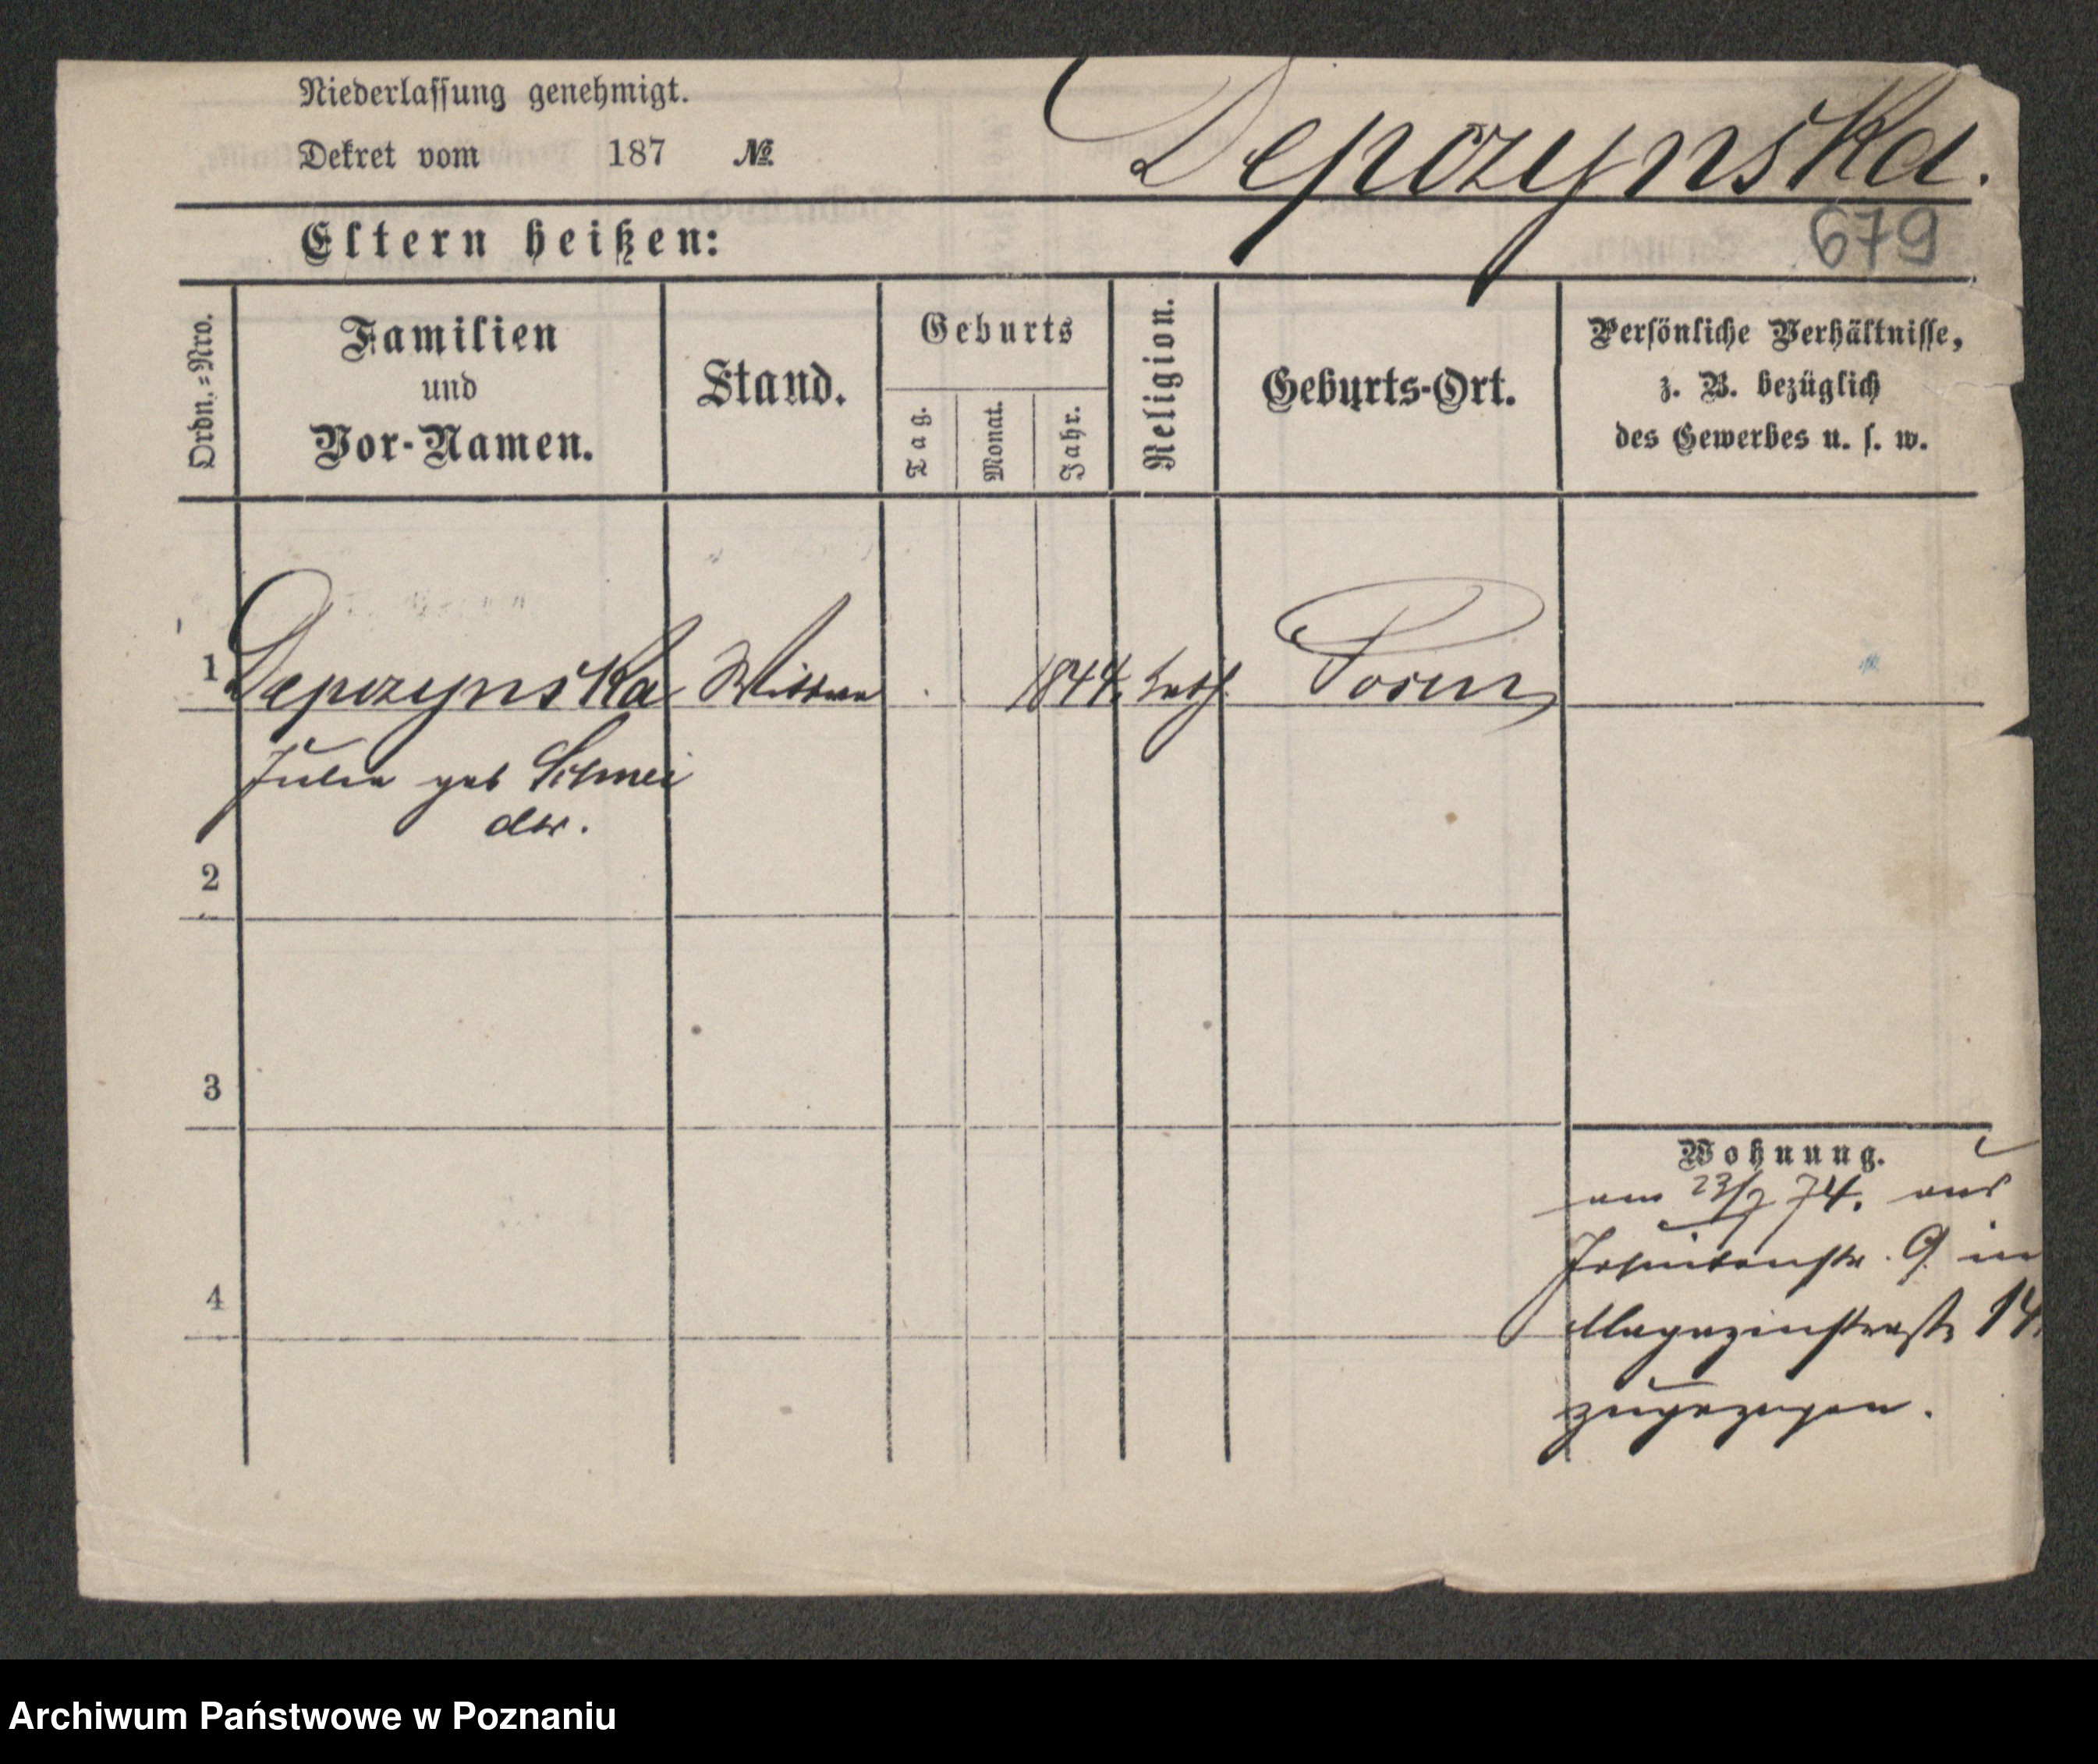 Niederlassung genehmigt.
Dekret vom 187 №
Depczynska.
679
Eltern heißen:
Ordn.-Nro.
Familien
und
Vor-Namen.
Stand.
Geburts
Tag.
Monat.
Jahr.
Religion.
Geburts-Ort.
Persönliche Verhältnisse,
z. B. bezüglich
des Gewerbes u. s. w.
1 Depczynska Wittwe 1844. kath. Posen
Julia geb Schnei
der.
2
3
4
Wohnung.
am 23/7 74. aus
Jesuitenstr. 9 in
Magazinstraße 14.
zugezogen.
Archiwum Państwowe w Poznaniu